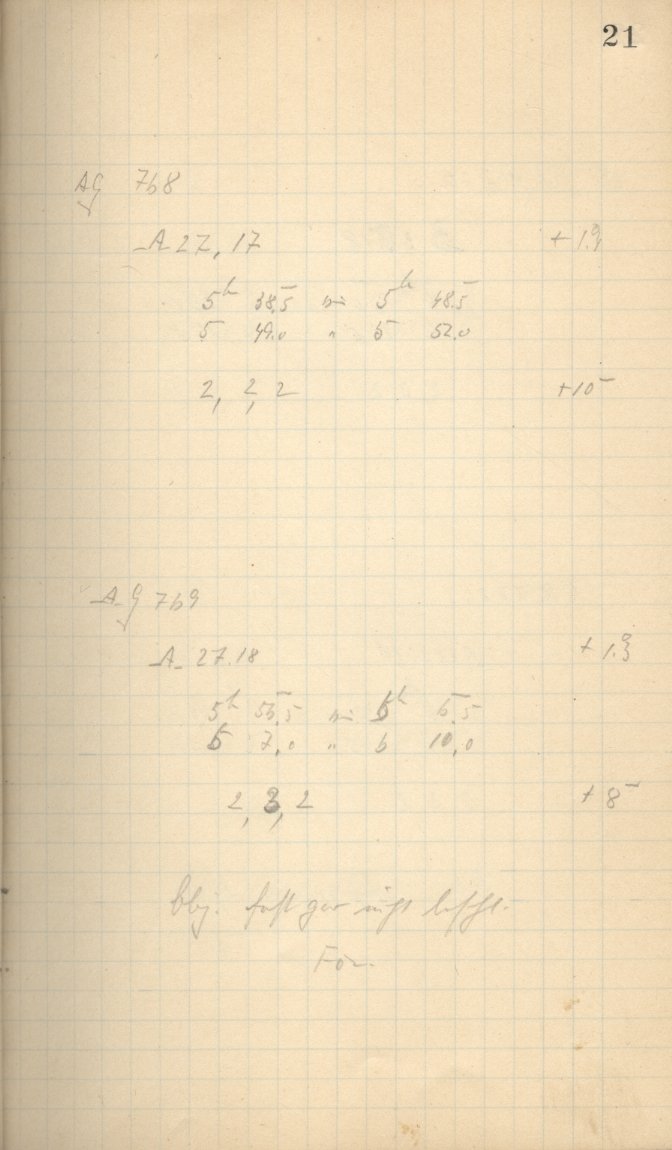 21
AG 768
A 27, 17 +1.9
5h 38.5 bis 5h 48.5
5 49.0 " 5 52.0
2, 2, 2 +10
A.G 769
A. 27.18 +1.3
5h 56.5 bis 6h 6.5
6 7,0 " 6 10,0
2, 3, 2 +8
Obj. fast gar nicht beschl.